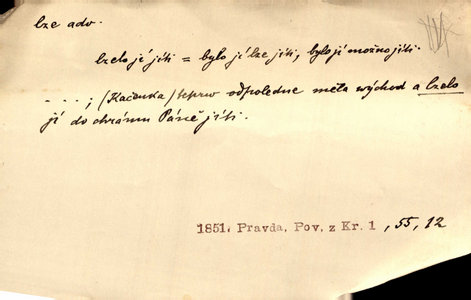 lze adv.
lzelo jí jíti = bylo jí lze jíti, bylo jí možno jíti.
. . . ; (Kačenka) teprv odpoledne měla východ a lzelo
jí do chrámu Páně jíti.
1851. Pravda, Pov. z Kr. 1, 55, 12